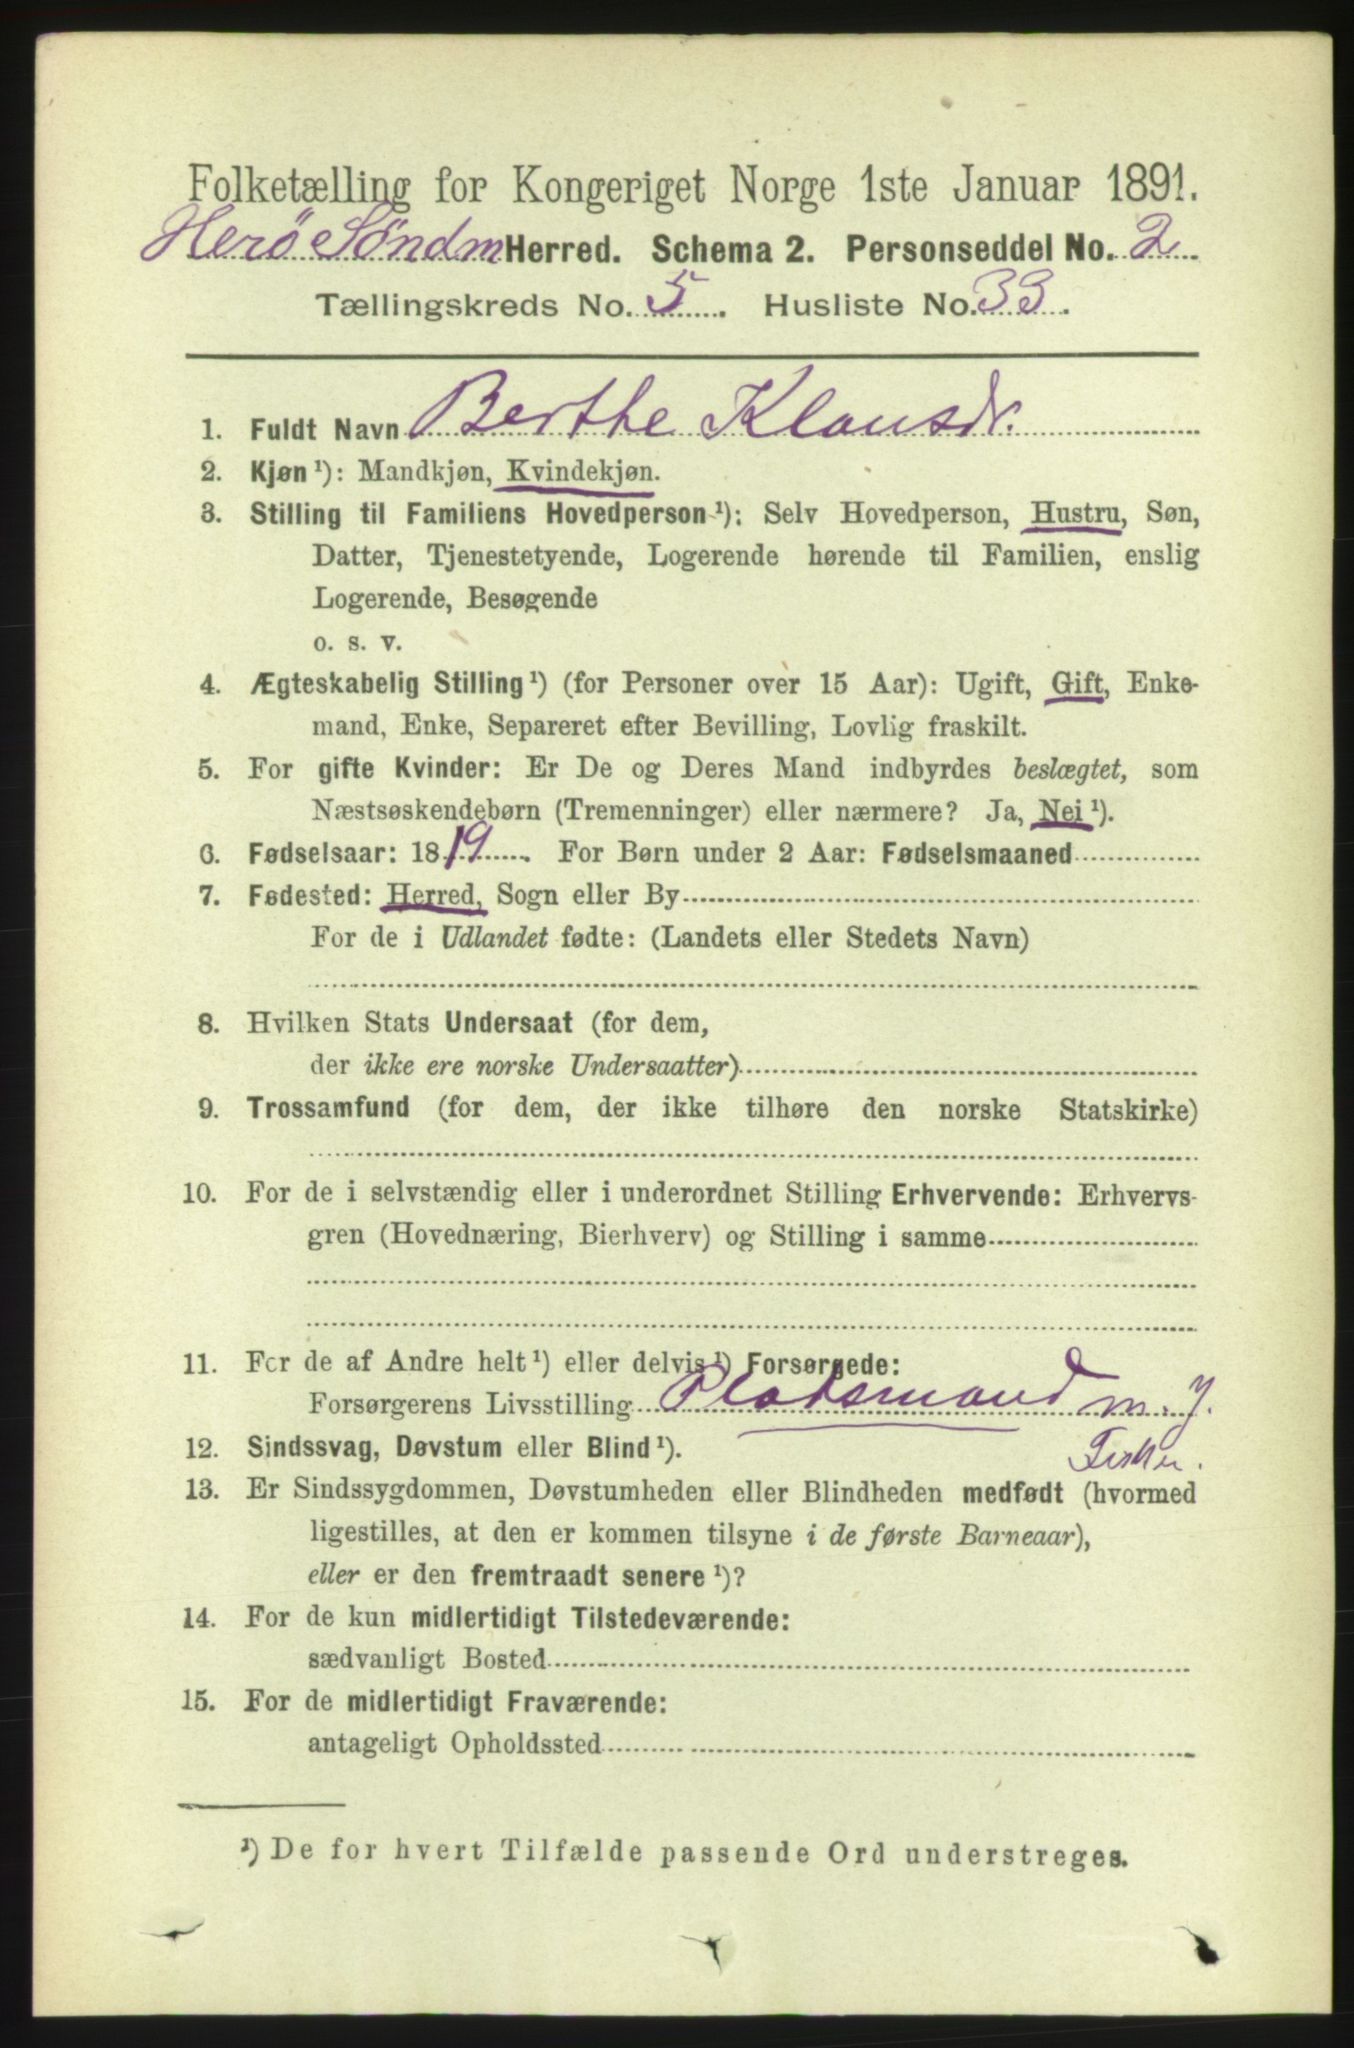 Folketælling for Kongeriget Norge 1ste Januar 1891.
Herö Söndm Herred. Schema 2. Personseddel No. 2
Tællingskreds No. 5. Husliste No. 33.
1. Fuldt Navn Berthe Klausdr.
2. Kjøn¹): Mandkjøn, Kvindekjøn.
3. Stilling til Familiens Hovedperson¹): Selv Hovedperson, Hustru, Søn,
Datter, Tjenestetyende, Logerende hørende til Familien, enslig
Logerende, Besøgende
o. s. v.
4. Ægteskabelig Stilling¹) (for Personer over 15 Aar): Ugift, Gift, Enke-
mand, Enke, Separeret efter Bevilling, Lovlig fraskilt.
5. For gifte Kvinder: Er De og Deres Mand indbyrdes beslægtet, som
Næstsøskendebørn (Tremenninger) eller nærmere? Ja, Nei¹).
6. Fødselsaar: 1819. For Børn under 2 Aar: Fødselsmaaned
7. Fødested: Herred, Sogn eller By
For de i Udlandet fødte: (Landets eller Stedets Navn)
8. Hvilken Stats Undersaat (for dem,
der ikke ere norske Undersaatter)
9. Trossamfund (for dem, der ikke tilhøre den norske Statskirke)
10. For de i selvstændig eller i underordnet Stilling Erhvervende: Erhvervs-
gren (Hovednæring, Bierhverv) og Stilling i samme
11. For de af Andre helt¹) eller delvis¹) Forsørgede:
Forsørgerens Livsstilling Pladsmand m. J.
Fisker.
12. Sindssvag, Døvstum eller Blind¹).
13. Er Sindssygdommen, Døvstumheden eller Blindheden medfødt (hvormed
ligestilles, at den er kommen tilsyne i de første Barneaar),
eller er den fremtraadt senere¹)?
14. For de kun midlertidigt Tilstedeværende:
sædvanligt Bosted
15. For de midlertidigt Fraværende:
antageligt Opholdssted
¹) De for hvert Tilfælde passende Ord understreges.